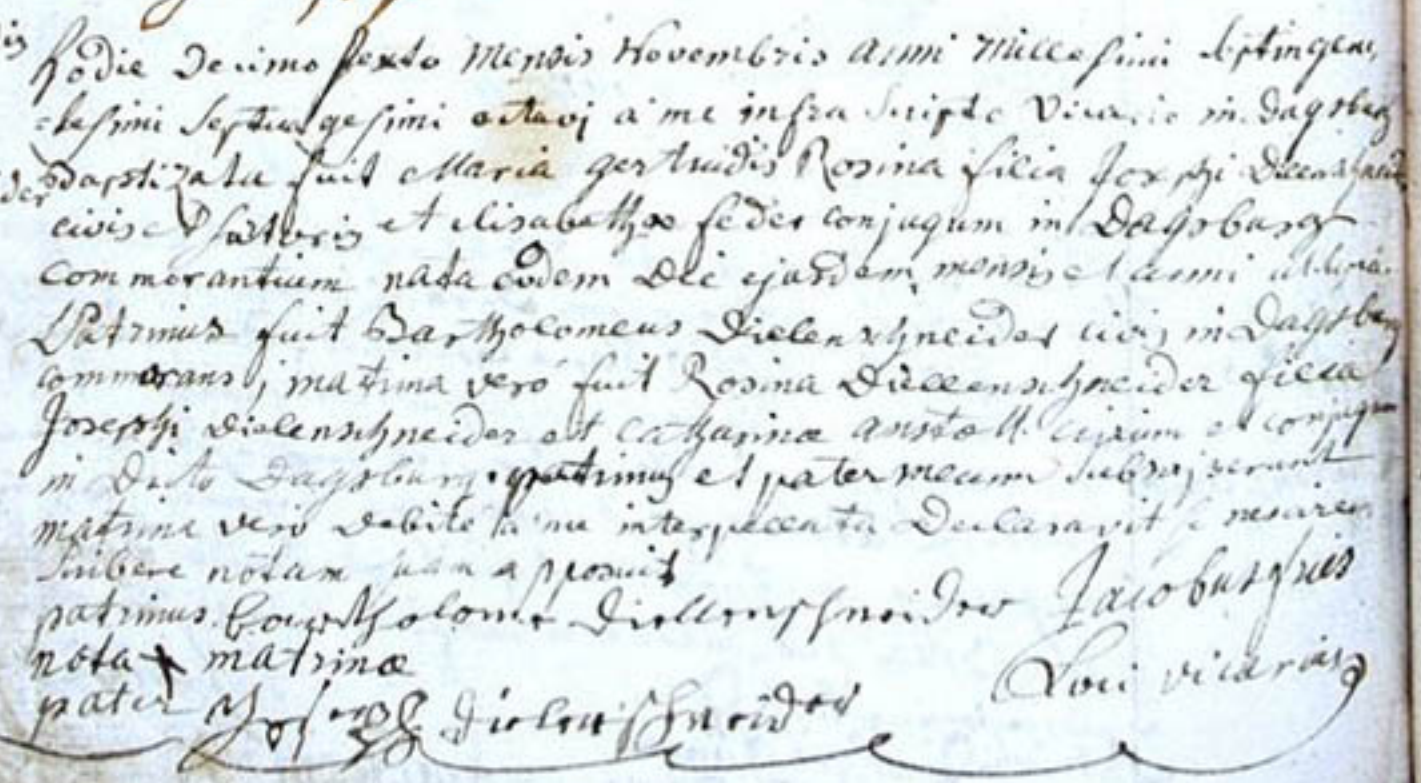 hodie decimo sexto mensis Novembris anni millesimi septingen,
=tesimi septuagesimi octavi a me infra scripto vicario in dagsburg
Baptizata fuit Maria gertrudis Rosina filia Josephi
civis et elisabethæ feder conjugum in Dagsburg
commorantium nata eodem die ejusdem mensis et anni ut supra.
Patrinus fuit Bartholomeus Dielenschneider civis in Dagsburg
commorans; matrina vero fuit Rosina Diellenschneider filia
Josephi Dielenschneider et Catharinæ anstett civium et conjugum
in dicto Dagsburg. patrinus et pater mecum subscripserunt
matrina vero debite a me interpellata declaravit se nescire
scribere notam suam apposuit
patrinus Bartholome Diellenschneider Jacobus
nota + matrinæ Loci vicarius
pater Joseph Dielenschneider